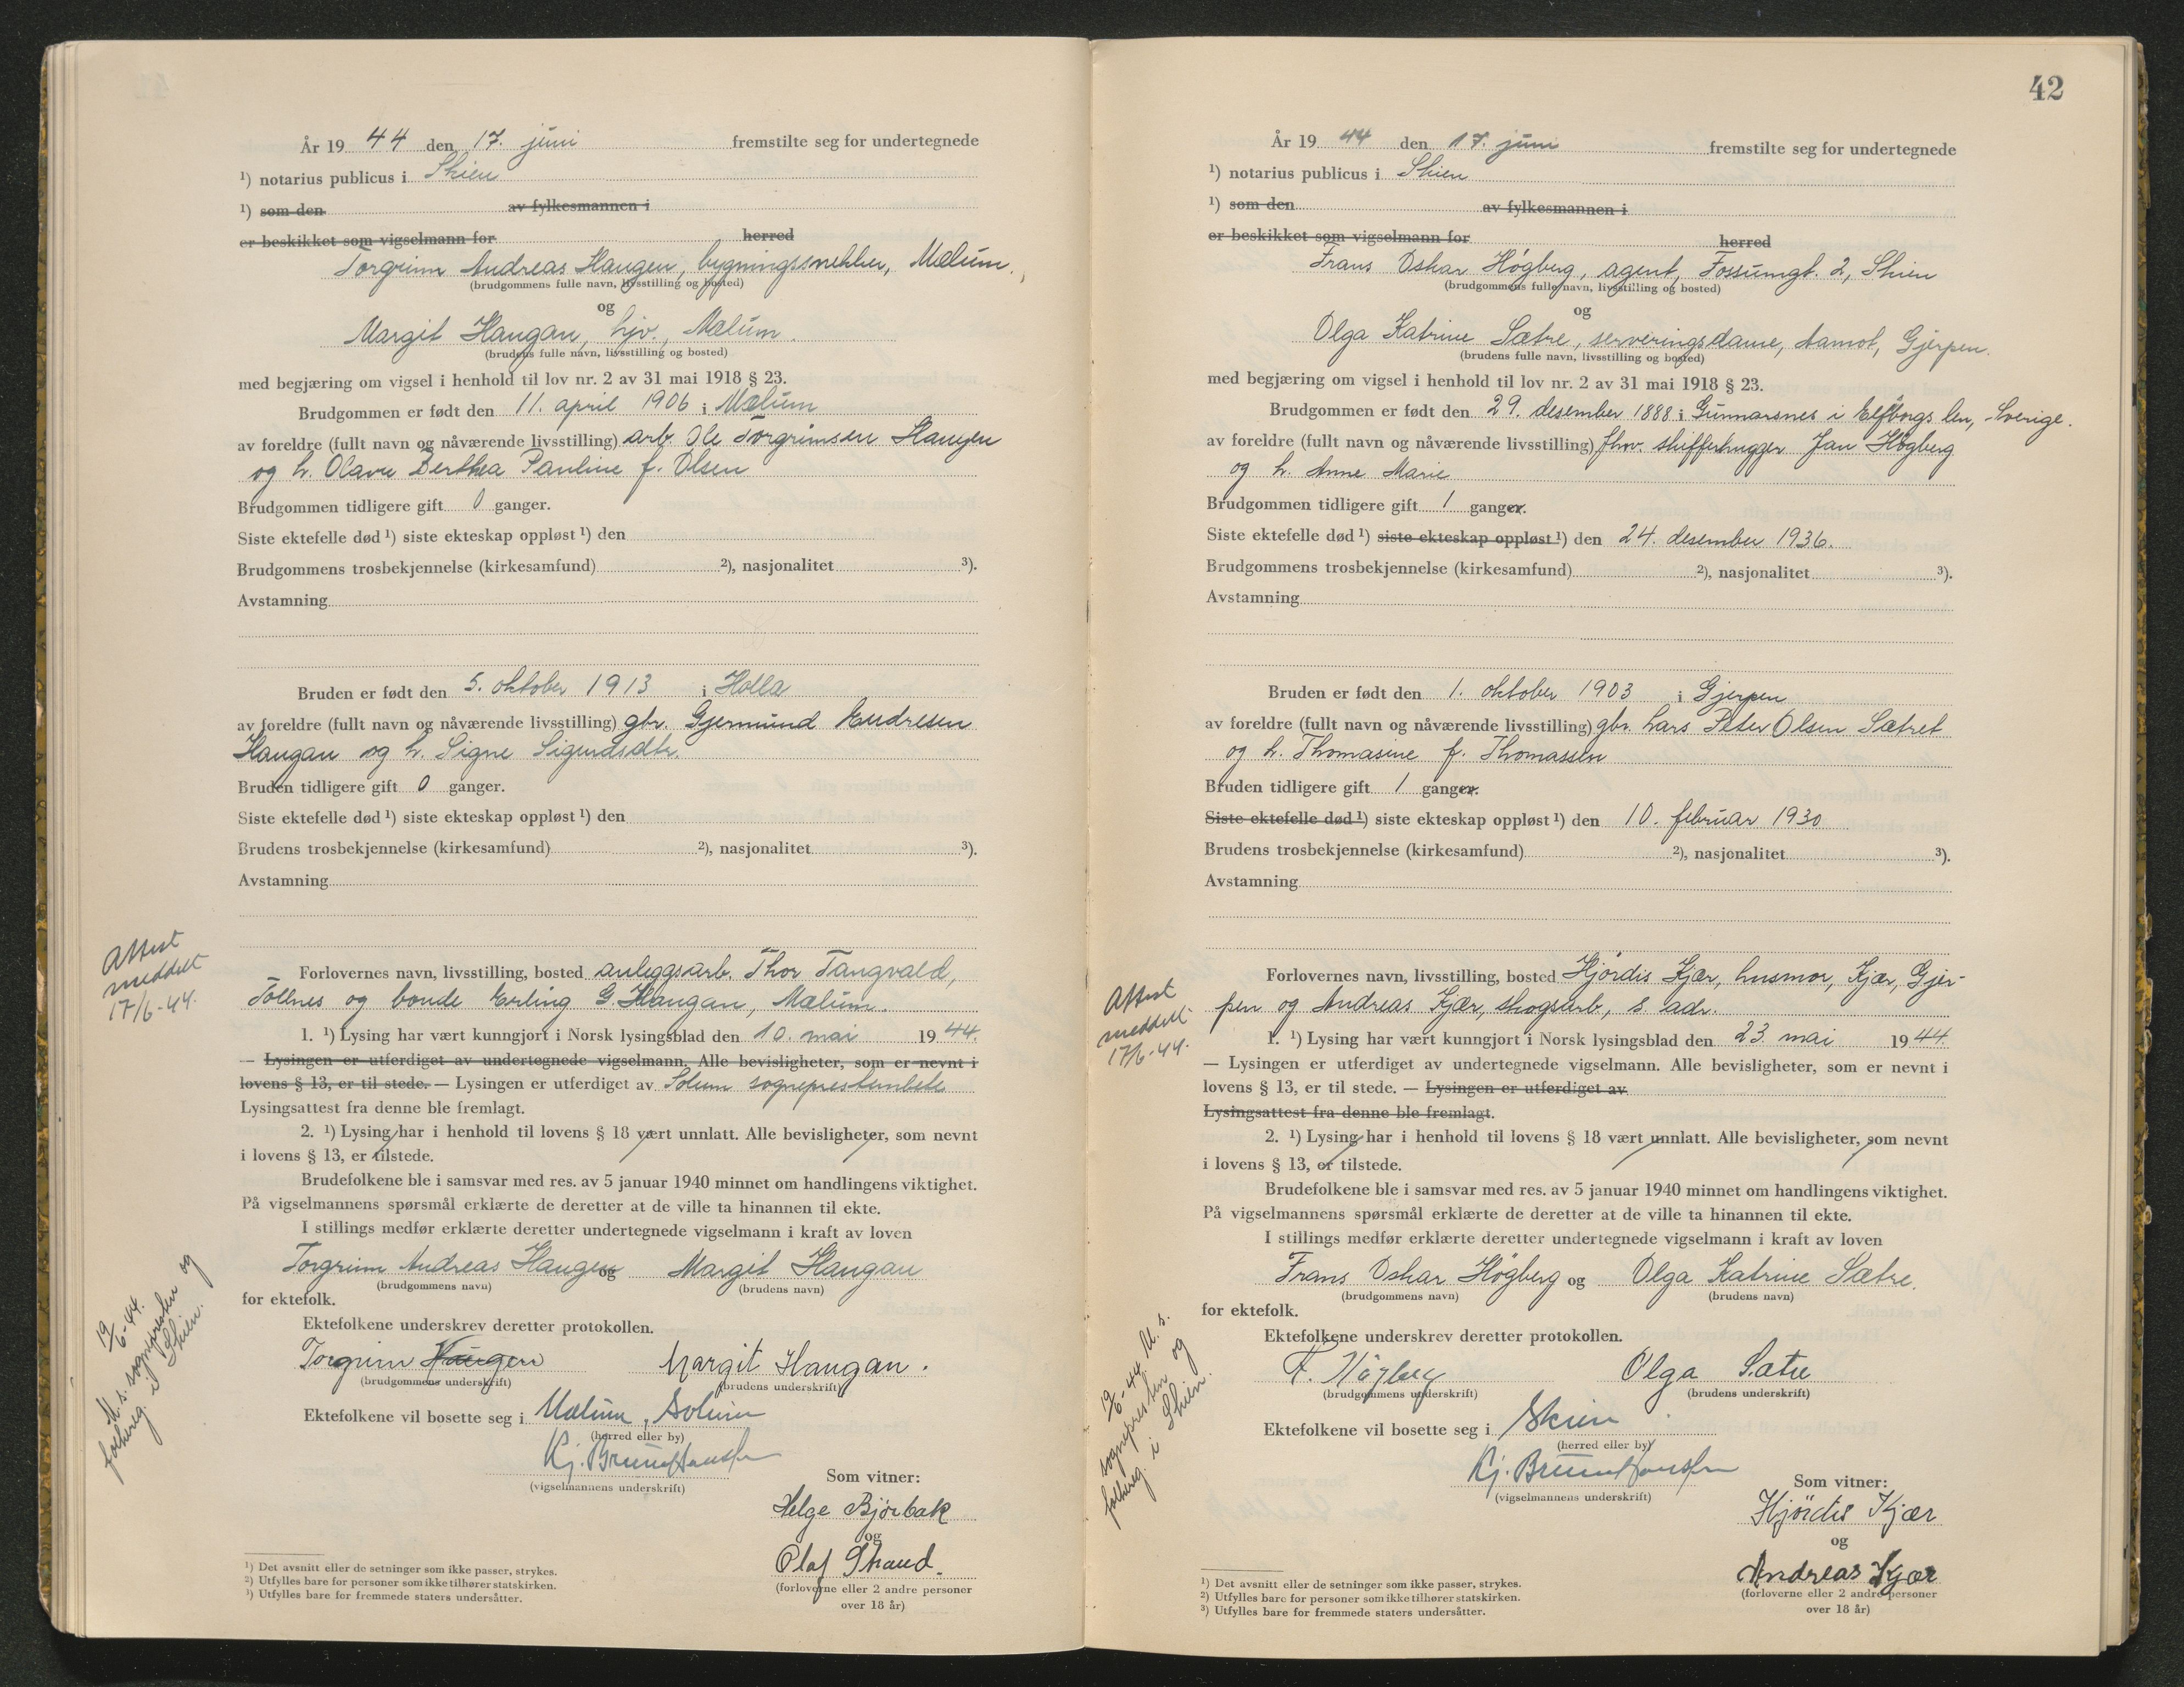 År 19 44 den 17. juni fremstilte seg for undertegnede
¹) notarius publicus i Skien
¹) som den av fylkesmannen i
er beskikket som vigselmann for herred
Torgrim Andreas Haugen, bygningssnekker, Mælum.
(brudgommens fulle navn, livsstilling og bosted)
og
Margit Haugan, hjv., Mælum.
(brudens fulle navn, livsstilling og bosted)
med begjæring om vigsel i henhold til lov nr. 2 av 31 mai 1918 § 23.
Brudgommen er født den 11. april 1906 i Mælum
av foreldre (fullt navn og nåværende livsstilling) arb. Ole Torgrimsen Haugen
og h. Olave Berthea Pauline f. Olsen
Brudgommen tidligere gift 0 ganger.
Siste ektefelle død ¹) siste ekteskap oppløst ¹) den
Brudgommens trosbekjennelse (kirkesamfund) ²), nasjonalitet ³).
Avstamning
Bruden er født den 5. oktober 1913 i Holla
av foreldre (fullt navn og nåværende livsstilling) gbr. Gjermund Endresen
Haugan og h. Signe Sigurdsdtr.
Bruden tidligere gift 0 ganger.
Siste ektefelle død ¹) siste ekteskap oppløst ¹) den
Brudens trosbekjennelse (kirkesamfund) ²), nasjonalitet ³).
Avstamning
Attest
meddelt
17/6-44.
Forlovernes navn, livsstilling, bosted anleggsarb. Thor Tangvald,
Tollnes og bonde Erling G. Haugan, Mælum.
1. ¹) Lysing har vært kunngjort i Norsk lysingsblad den 10. mai 1944.
— Lysingen er utferdiget av undertegnede vigselmann. Alle bevisligheter, som er nevnt i
lovens § 13, er til stede. — Lysingen er utferdiget av Solum sogneprestembete
Lysingsattest fra denne ble fremlagt.
2. ¹) Lysing har i henhold til lovens § 18 vært unnlatt. Alle bevisligheter, som nevnt
i lovens § 13, er tilstede.
Brudefolkene ble i samsvar med res. av 5 januar 1940 minnet om handlingens viktighet.
På vigselmannens spørsmål erklærte de deretter at de ville ta hinannen til ekte.
I stillings medfør erklærte deretter undertegnede vigselmann i kraft av loven
Torgrim Andreas Haugen og Margit Haugan
(brudgommens navn) (brudens navn)
for ektefolk.
19/6-44.
M. s. sognepresten og
folkereg. i Skien.
Ektefolkene underskrev deretter protokollen.
Torgrim Haugen Margit Haugan.
(brudgommens underskrift) (brudens underskrift)
Ektefolkene vil bosette seg i Mælum, Solum
(herred eller by)
Kj. Bruun Hansen
(vigselmannens underskrift)
Som vitner:
Helge Bjørbæk
og
Olaf Strand.
(forloverne eller 2 andre personer
over 18 år)
¹) Det avsnitt eller de setninger som ikke passer, strykes.
²) Utfylles bare for personer som ikke tilhører statskirken.
³) Utfylles bare for fremmede staters undersåtter.
42
År 19 44 den 17. juni fremstilte seg for undertegnede
¹) notarius publicus i Skien
¹) som den av fylkesmannen i
er beskikket som vigselmann for herred
Frans Oskar Høgberg, agent, Fossumgt. 2, Skien
(brudgommens fulle navn, livsstilling og bosted)
og
Olga Katrine Sætre, serveringsdame, Aamot, Gjerpen.
(brudens fulle navn, livsstilling og bosted)
med begjæring om vigsel i henhold til lov nr. 2 av 31 mai 1918 § 23.
Brudgommen er født den 29. desember 1888 i Gunnarsnes i Elfborgs len, Sverige.
av foreldre (fullt navn og nåværende livsstilling) fhv. skifferhugger Jan Høgberg
og h. Anne Marie
Brudgommen tidligere gift 1 ganger.
Siste ektefelle død ¹) siste ekteskap oppløst ¹) den 24. desember 1936.
Brudgommens trosbekjennelse (kirkesamfund) ²), nasjonalitet ³).
Avstamning
Bruden er født den 1. oktober 1903 i Gjerpen
av foreldre (fullt navn og nåværende livsstilling) gbr. Lars Peter Olsen Sætret
og h. Thomasine f. Thomassen
Bruden tidligere gift 1 ganger.
Siste ektefelle død ¹) siste ekteskap oppløst ¹) den 10. februar 1930
Brudens trosbekjennelse (kirkesamfund) ²), nasjonalitet ³).
Avstamning
Attest
meddelt
17/6-44.
Forlovernes navn, livsstilling, bosted Hjørdis Kjær, husmor, Kjær, Gjer-
pen og Andreas Kjær, skogsarb., s. adr.
1. ¹) Lysing har vært kunngjort i Norsk lysingsblad den 23. mai 1944.
— Lysingen er utferdiget av undertegnede vigselmann. Alle bevisligheter, som er nevnt i
lovens § 13, er til stede. — Lysingen er utferdiget av
Lysingsattest fra denne ble fremlagt.
2. ¹) Lysing har i henhold til lovens § 18 vært unnlatt. Alle bevisligheter, som nevnt
i lovens § 13, er tilstede.
Brudefolkene ble i samsvar med res. av 5 januar 1940 minnet om handlingens viktighet.
På vigselmannens spørsmål erklærte de deretter at de ville ta hinannen til ekte.
I stillings medfør erklærte deretter undertegnede vigselmann i kraft av loven
Frans Oskar Høgberg og Olga Katrine Sætre.
(brudgommens navn) (brudens navn)
for ektefolk.
19/6-44 M. s.
sognepresten og
folkereg. i Skien.
Ektefolkene underskrev deretter protokollen.
F. Högberg Olga Sætre
(brudgommens underskrift) (brudens underskrift)
Ektefolkene vil bosette seg i Skien
(herred eller by)
Kj. Bruun Hansen
(vigselmannens underskrift)
Som vitner:
Hjørdis Kjær
og
Andreas Kjær
(forloverne eller 2 andre personer
over 18 år)
¹) Det avsnitt eller de setninger som ikke passer, strykes.
²) Utfylles bare for personer som ikke tilhører statskirken.
³) Utfylles bare for fremmede staters undersåtter.